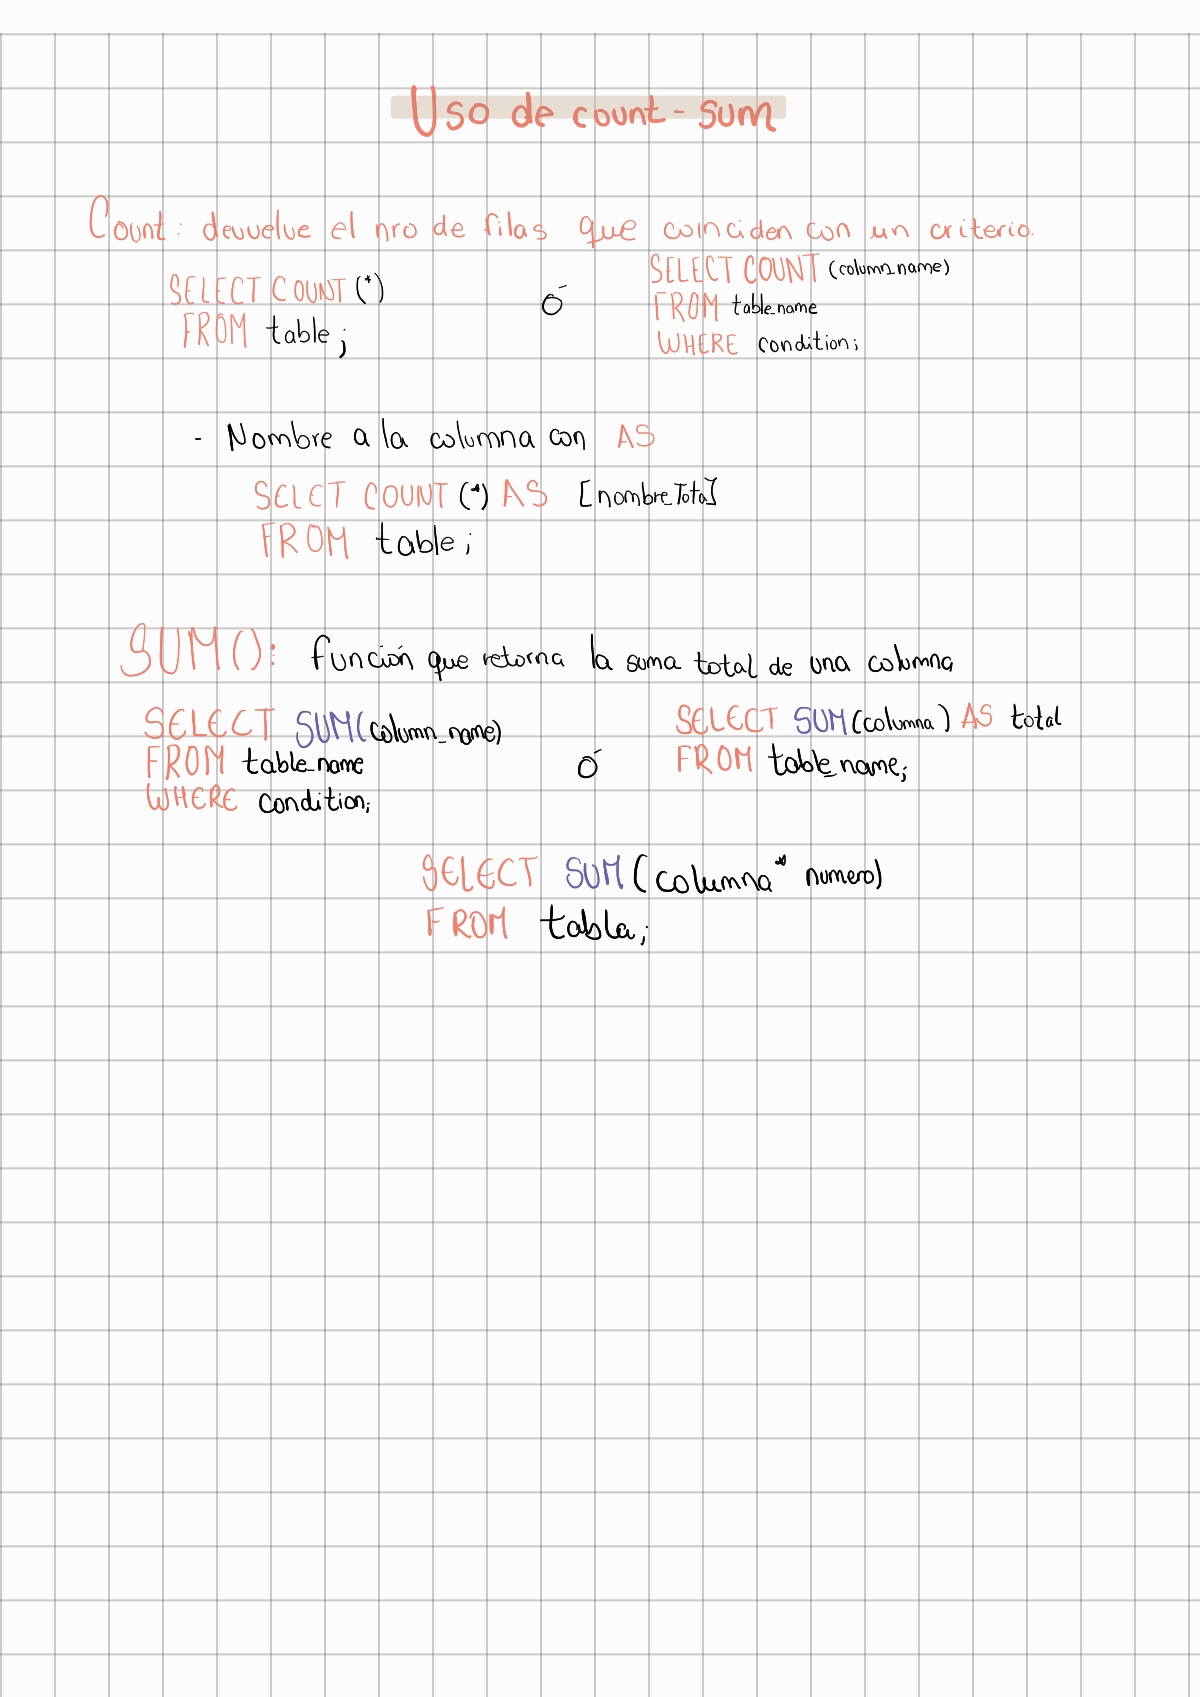 Uso de count - sum
Count: devuelve el nro de filas que coinciden con un criterio.
SELECT COUNT (*)
FROM table;
ó
SELECT COUNT (column_name)
FROM table_name
WHERE condition;
- Nombre a la columna con AS
SELCT COUNT (*) AS [nombre_Total]
FROM table;
SUM(): función que retorna la suma total de una columna
SELECT SUM(column_name)
FROM table_name
WHERE condition;
ó
SELECT SUM(columna) AS total
FROM table_name;
SELECT SUM(columna * numero)
FROM tabla;